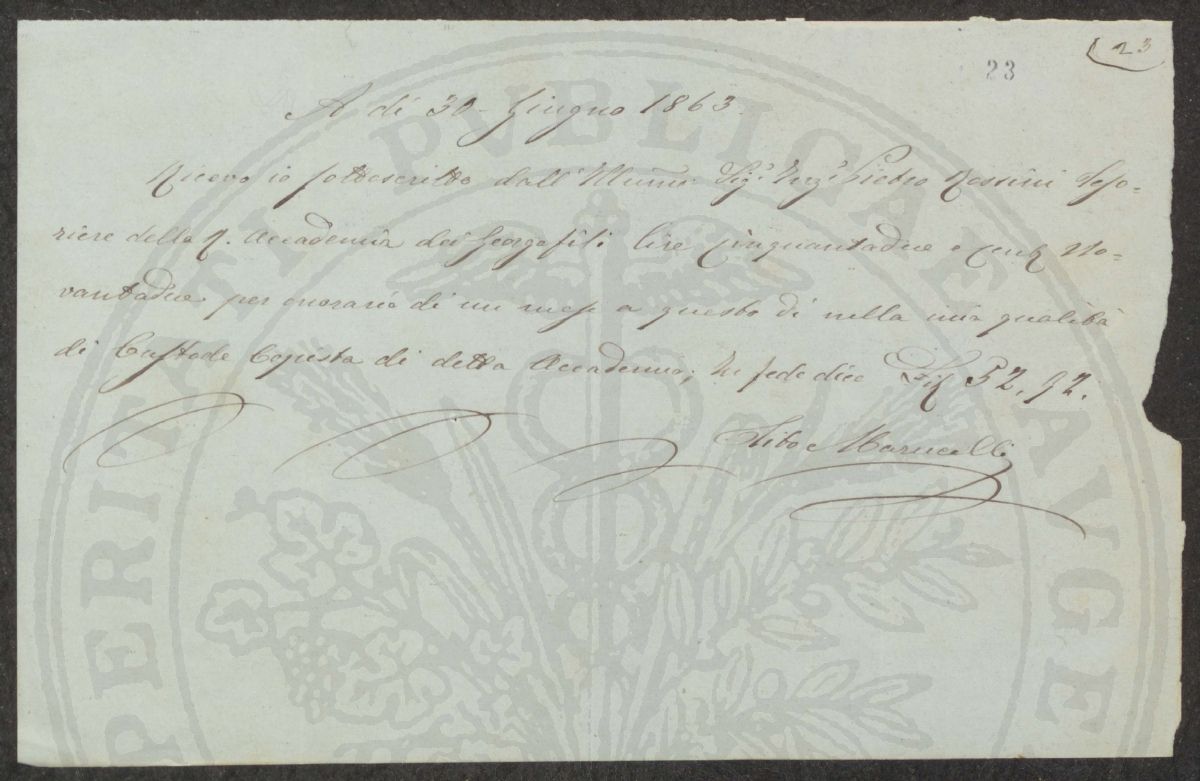 23
23
A dì 30 Giugno 1863.
Ricevo io sottoscritto dall'Illmo Sigr Pietro Rossini Teso-
riere della R. Accademia dei Georgofili lire Cinquantadue e Cent. No-
vantadue per onorario di un mese a questo dì nella mia qualità
di Custode Copista di detta Accademia; In fede dico 52,92.
Marucelli
PERITATI PVBLICAE AVGE